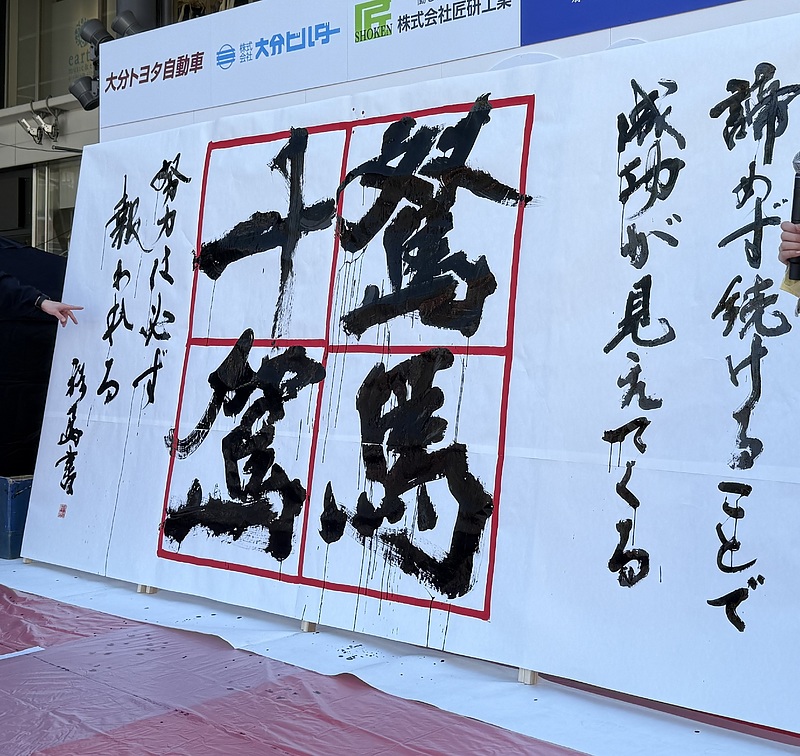 大分トヨタ自動車
株式会社 大分ビルダー
匠
SHOKEN
株式会社匠研工業
諦めず続けることで
成功が見えてくる
駑馬
十駕
努力は必ず
報われる